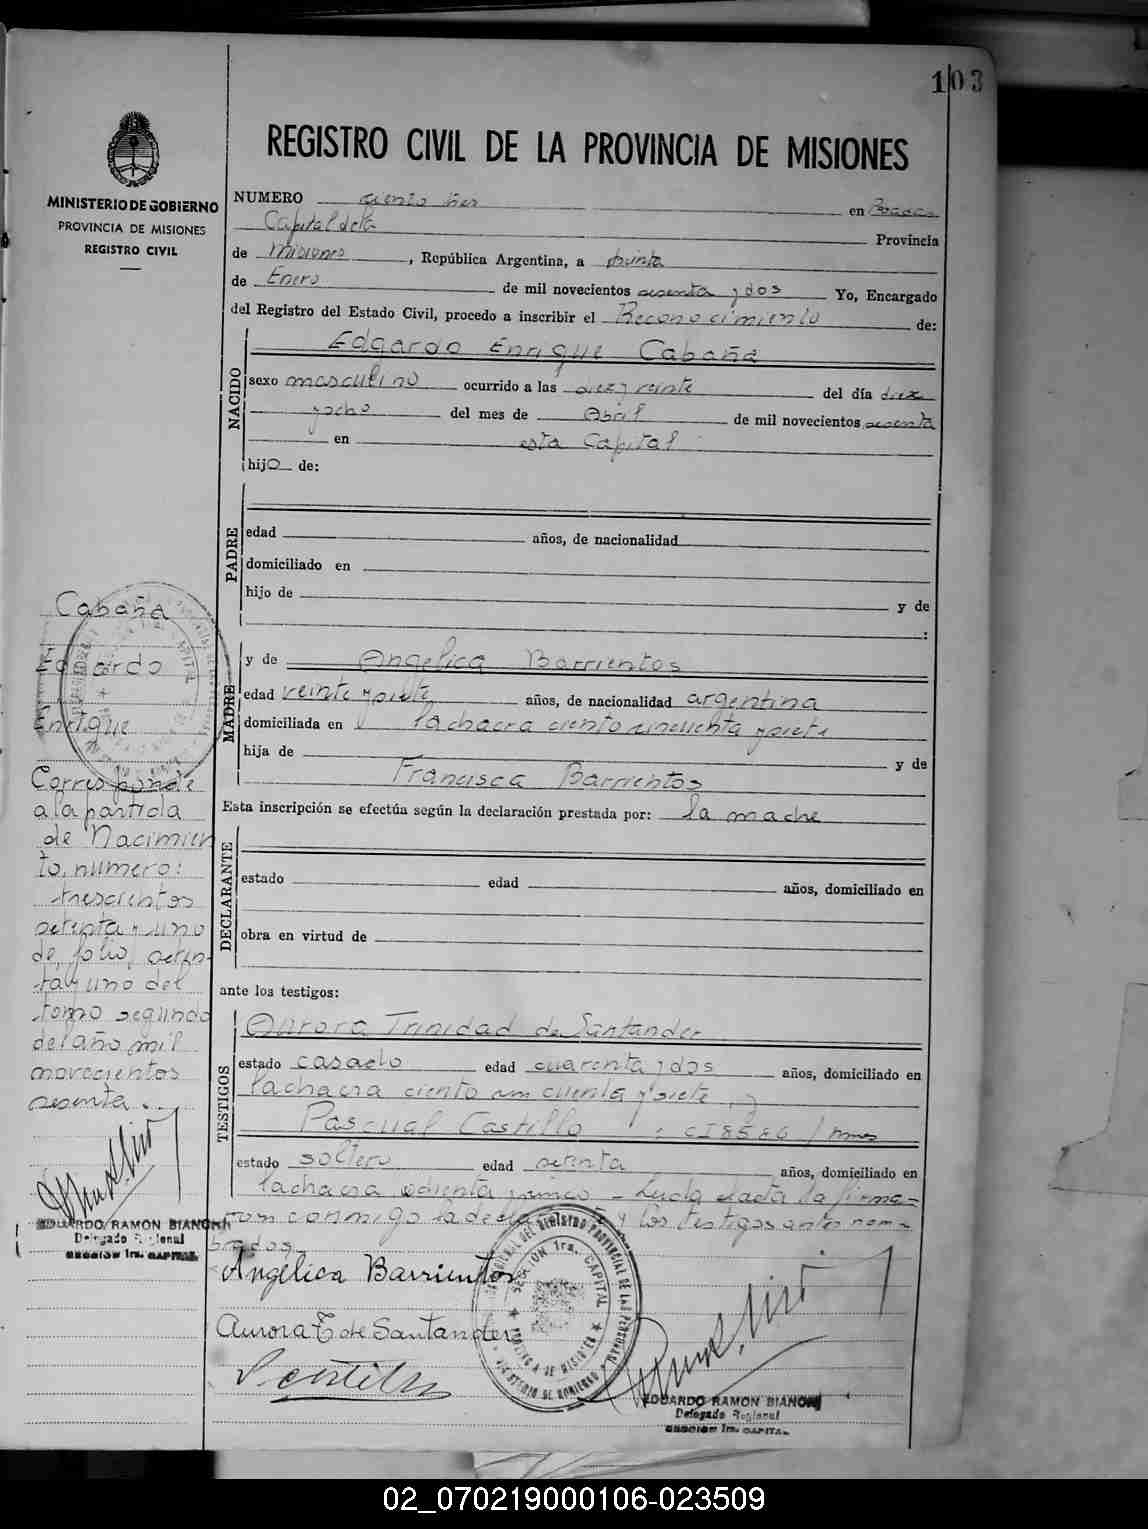 103
REGISTRO CIVIL DE LA PROVINCIA DE MISIONES
MINISTERIO DE GOBIERNO
PROVINCIA DE MISIONES
REGISTRO CIVIL
NUMERO ciento tres en Posadas
Capital de la Provincia
de Misiones, República Argentina, a treinta
de Enero de mil novecientos sesenta y dos Yo, Encargado
del Registro del Estado Civil, procedo a inscribir el Reconocimiento de:
NACIDO
Edgardo Enrique Cabaña
sexo masculino ocurrido a las diez y veinte del día diez
y ocho del mes de Abril de mil novecientos sesenta
en esta Capital
hijo de:
PADRE
edad años, de nacionalidad
domiciliado en
hijo de y de
:
MADRE
y de Angelica Barrientos
edad veinte y siete años, de nacionalidad argentina
domiciliada en la chacra ciento cincuenta y siete
hija de y de
Francisca Barrientos
Esta inscripción se efectúa según la declaración prestada por: la madre
DECLARANTE
estado edad años, domiciliado en
obra en virtud de
ante los testigos:
TESTIGOS
Aurora Trinidad de Santander
estado casado edad cuarenta y dos años, domiciliado en
la chacra ciento cincuenta y siete, y
Pascual Castillo : CI 8586
estado soltero edad setenta años, domiciliado en
la chacra ochenta y cinco - Leida el acta la firma=
ron conmigo la y los testigos antes nom-
brados
Angélica Barrientos
Aurora T de Santander
EDUARDO RAMON BIANCHI
Delegado Regional
SECCION 1ra. CAPITAL
Cabaña
Edgardo
Enrique
Corresponde
a la partida
de Nacimien
to, numero:
trescientos
setenta y uno
de, folio, seten-
ta y uno del
tomo segundo
del año mil
novecientos
sesenta.
EDUARDO RAMON BIANCHI
Delegado Regional
SECCION 1ra. CAPITAL
SECCION 1ra. CAPITAL
02_070219000106-023509